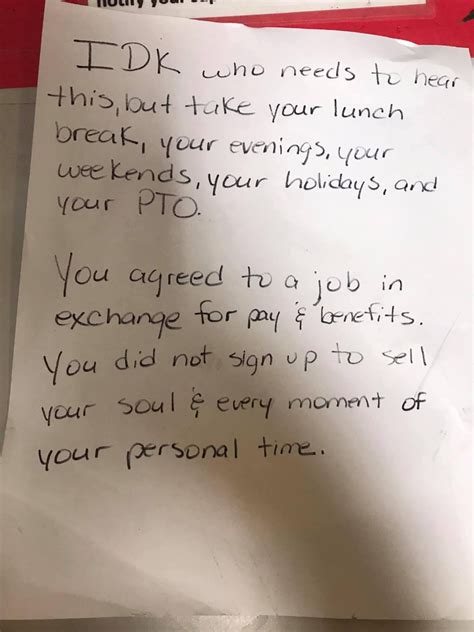 IDK who needs to hear
this, but take your lunch
break, your evenings, your
weekends, your holidays, and
your PTO.
You agreed to a job in
exchange for pay & benefits.
You did not sign up to sell
your soul & every moment of
your personal time.